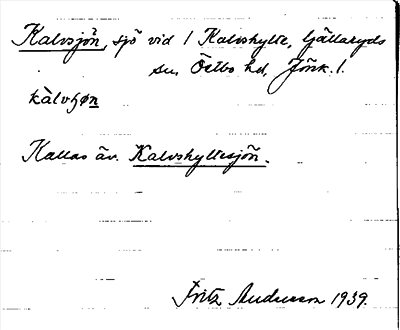 Kalvsjön, sjö vid 1 Kalvshylte, Gällaryds
sn, Östbo hd, Jönk. l.
kàlvʃøn
Kallas äv. Kalvshyltesjön.
Fritz Andersson 1939.